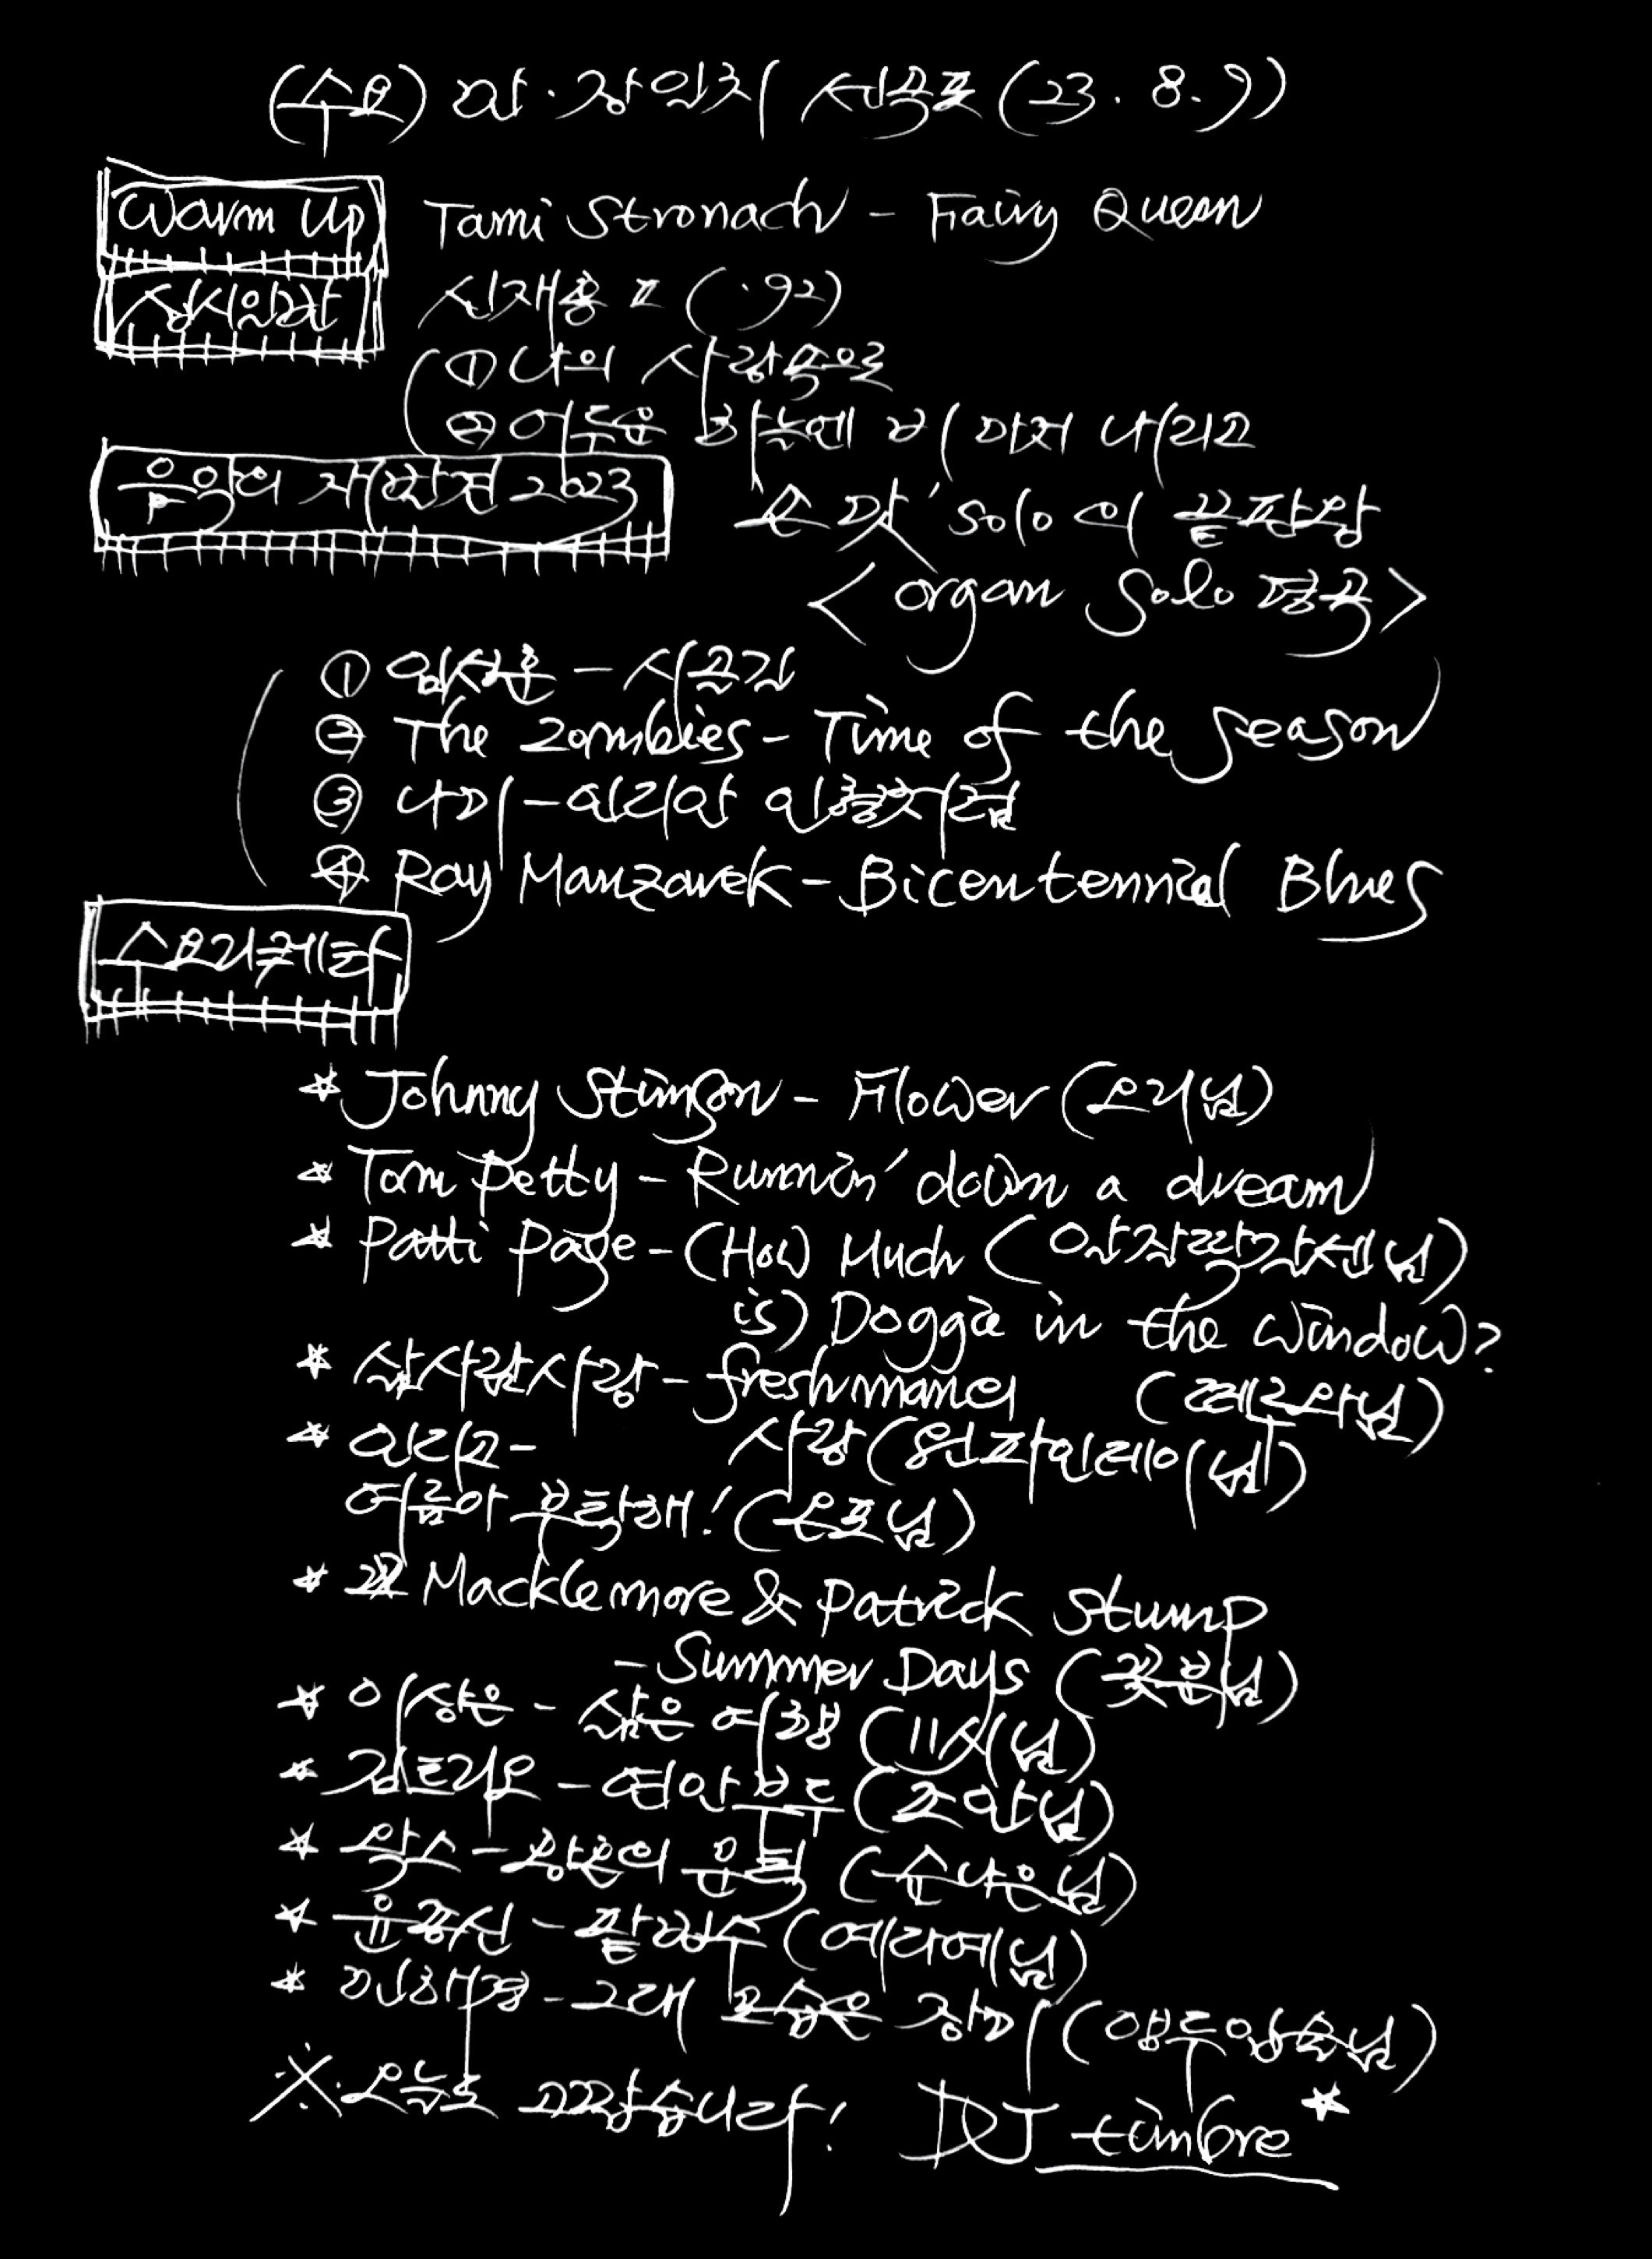 (수요) 깐·장인치 선곡표 (23. 8. 9)
Warm Up Tami Stronach - Fairy Queen
신재홍 Ⅱ ('92)
① 나의 사랑속으로
② 어두운 하늘에 비마저 내리고
음악의 재발견 2023
손맛 solo의 끝판왕
<organ Solo 명곡>
① 임지훈 - 시골길
② The Zombies - Time of the Season
③ 나미 - 미리암 인형처럼
④ Ray Manzarek - Bicentennial Blues
수요리퀘라
* Johnny Stimson - Flower (오리님)
* Tom Petty - Runnin' down a dream
* Patti Page - (How Much (
is) Doggie in the window?
* 삶사람사랑 - freshman의 (
* 인리꼬 - 사랑 (원파인데이님)
여름아 부탁해! (은표님)
* Macklemore & Patrick Stump
- Summer Days (꽃분님)
* 이상은 - 삶은 여행 (11시님)
* 김트리오 - 연안부두 (조약님)
* 왁스 - 황혼의 문턱 (순나은님)
* 윤종신 - 팥빙수 (에라에님)
* 민해경 - 그대 모습은 장미 (앵두왕순님)
※ 오늘도 고맙습니다! DJ timbre *